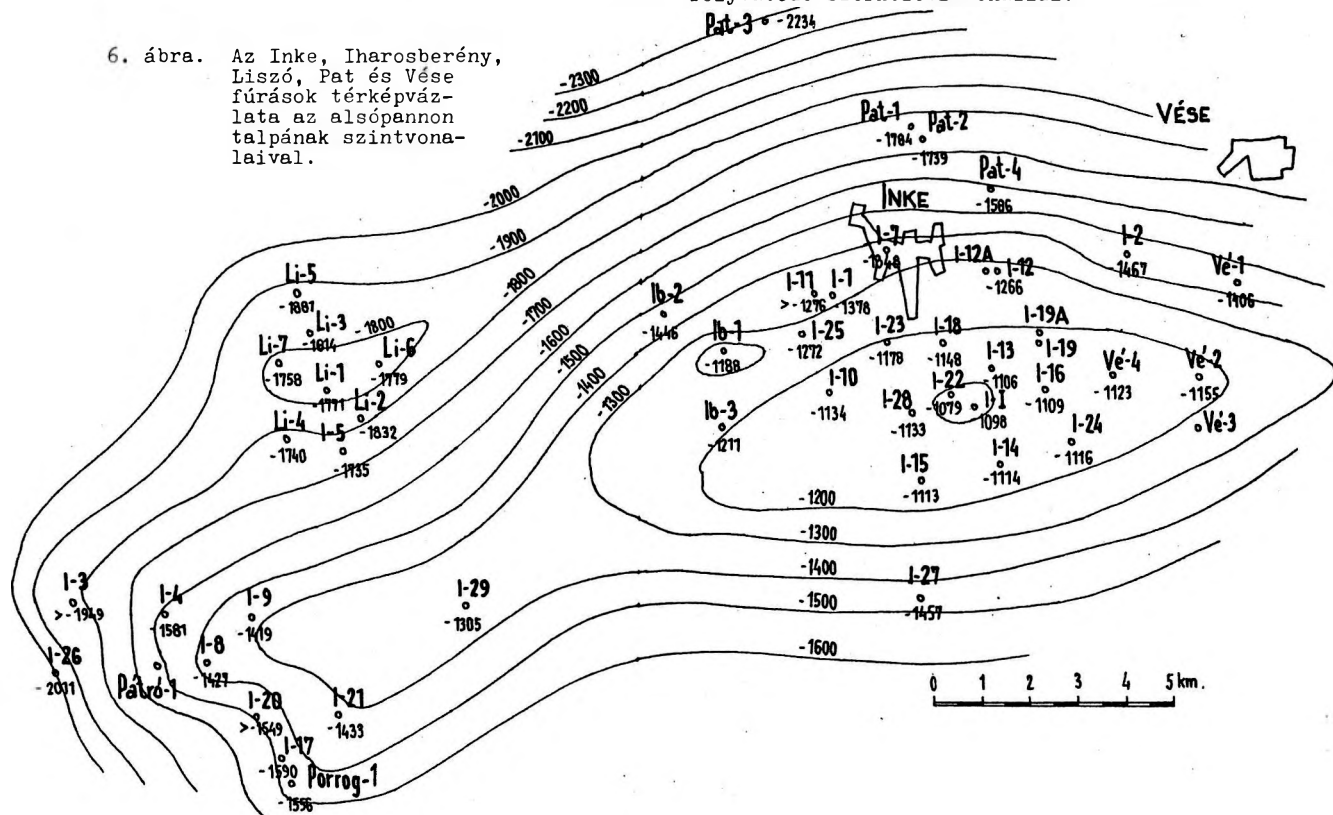 Pat-3 -2234
6. ábra. Az Inke, Iharosberény,
Liszó, Pat és Vése
fúrások térképváz-
lata az alsópannon
talpának szintvona-
laival.
-2300
-2200
-2100
-2000
-1900
-1800
-1700
-1600
-1500
-1400
-1300
VÉSE
Pat-1
-1784
Pat-2
-1739
Pat-4
-1586
INKE
I-7
I-12A
I-12
-1266
I-2
-1467
Vé-1
-1406
Li-5
-1881
Li-3
-1814
-1800
Li-7
-1758
Li-6
-1779
Li-1
-1771
Li-2
-1832
Li-4
-1740
I-5
-1735
Ib-2
-1446
Ib-1
-1188
Ib-3
-1211
I-11
>-1276
I-1
-1378
I-25
-1272
I-23
-1178
I-18
-1148
I-19A
I-19
I-13
-1106
I-16
-1109
Vé-4
-1123
Vé-2
-1155
Vé-3
I-10
-1134
I-28
-1133
I-22
-1079
I-I
1098
I-24
-1116
I-14
-1114
I-15
-1113
-1200
-1300
-1400
-1500
-1600
I-27
-1457
I-3
>-1949
I-4
-1581
I-9
-1419
I-29
-1305
I-8
-1427
I-26
-2011
Pátró-1
I-20
>-1549
I-21
-1433
I-17
-1590
Porrog-1
-1556
0 1 2 3 4 5 km.